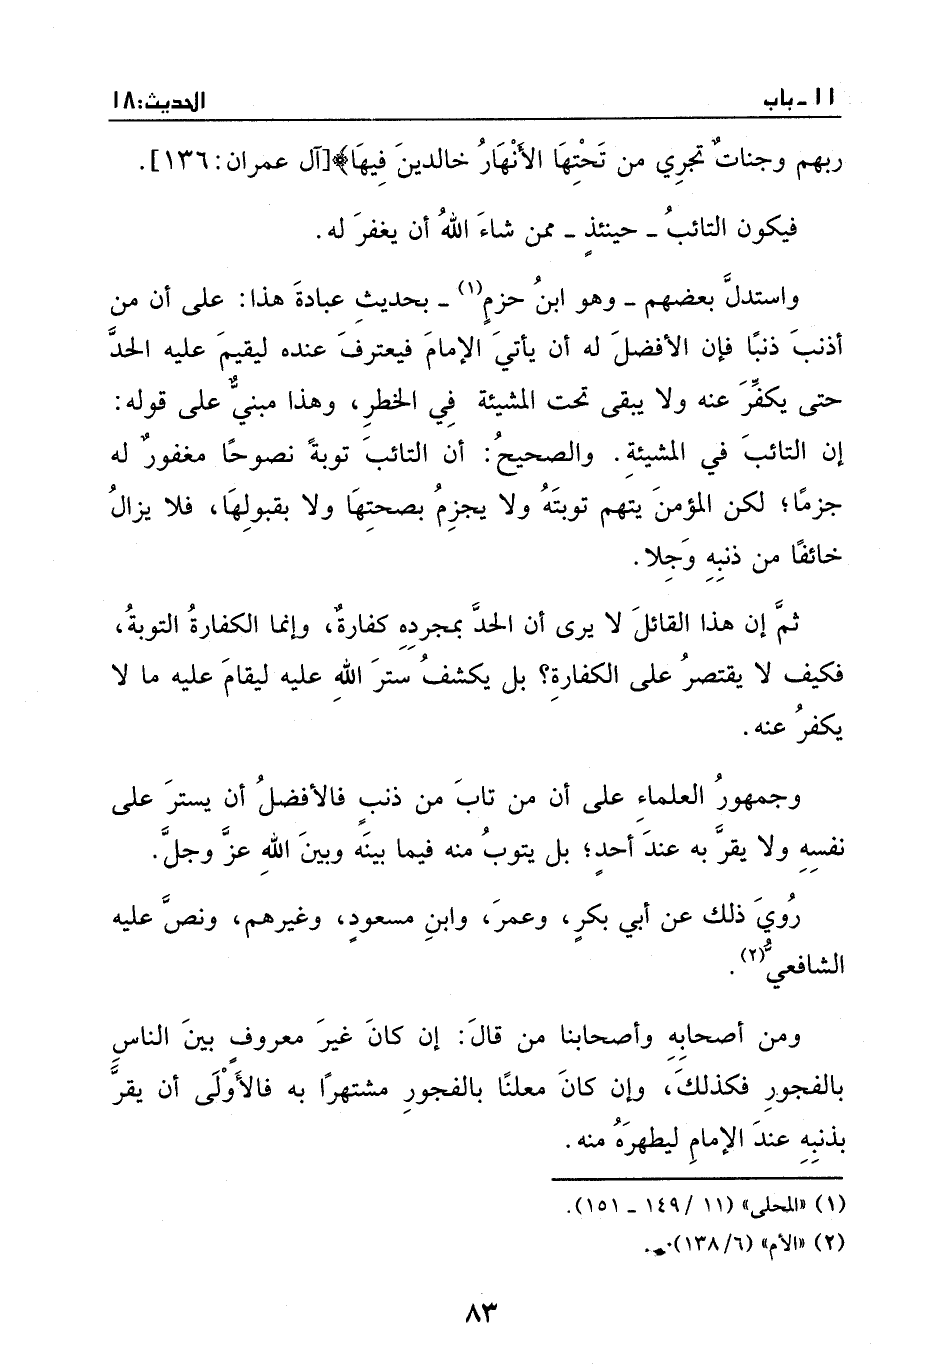 ١١ - باب
الحديث: ١٨
ربهم وجناتٌ تجرِي من تَحْتِهَا الأَنْهَارُ خالدينَ فِيهَا﴾[آل عمران: ١٣٦].
فيكون التائبُ - حينئذٍ - ممن شاءَ اللهُ أن يغفرَ له.
واستدلَّ بعضهم - وهو ابنُ حزمٍ(١) - بحديثِ عبادةَ هذا: على أن من
أذنبَ ذنبًا فإن الأفضلَ له أن يأتيَ الإمامَ فيعترفَ عنده ليقيمَ عليه الحدَّ
حتى يكفِّرَ عنه ولا يبقى تحت المشيئة فِي الخطرِ، وهذا مبنيٌّ على قوله:
إن التائبَ في المشيئةِ. والصحيحُ: أن التائبَ توبةً نصوحًا مغفورٌ له
جزمًا؛ لكن المؤمنَ يتهم توبتَهُ ولا يجزِمُ بصحتِهَا ولا بقبولِهَا، فلا يزالُ
خائفًا من ذنبِهِ وَجِلا.
ثمَّ إن هذا القائلَ لا يرى أن الحدَّ بمجردِهِ كفارةٌ، وإنما الكفارةُ التوبةُ،
فكيف لا يقتصرُ على الكفارةِ؟ بل يكشفُ سترَ اللهِ عليه ليقامَ عليه ما لا
يكفرُ عنه.
وجمهورُ العلماءِ على أن من تابَ من ذنبٍ فالأفضلُ أن يسترَ على
نفسِهِ ولا يقرَّ به عندَ أحدٍ؛ بل يتوبُ منه فيما بينَه وبينَ اللهِ عزَّ وجلَّ.
رُويَ ذلك عن أبي بكرٍ، وعمرَ، وابنِ مسعودٍ، وغيرهم، ونصَّ عليه
الشافعيُّ(٢).
ومن أصحابِهِ وأصحابنا من قالَ: إن كانَ غيرَ معروفٍ بينَ الناسِ
بالفجورِ فكذلكَ، وإن كانَ معلنًا بالفجورِ مشتهرًا به فالأَوْلَى أن يقرَّ
بذنبِهِ عندَ الإمامِ ليطهرَهُ منه.
(١) «المحلى» (١١ /١٤٩ - ١٥١).
(٢) «الأم» (١٣٨/٦).
٨٣